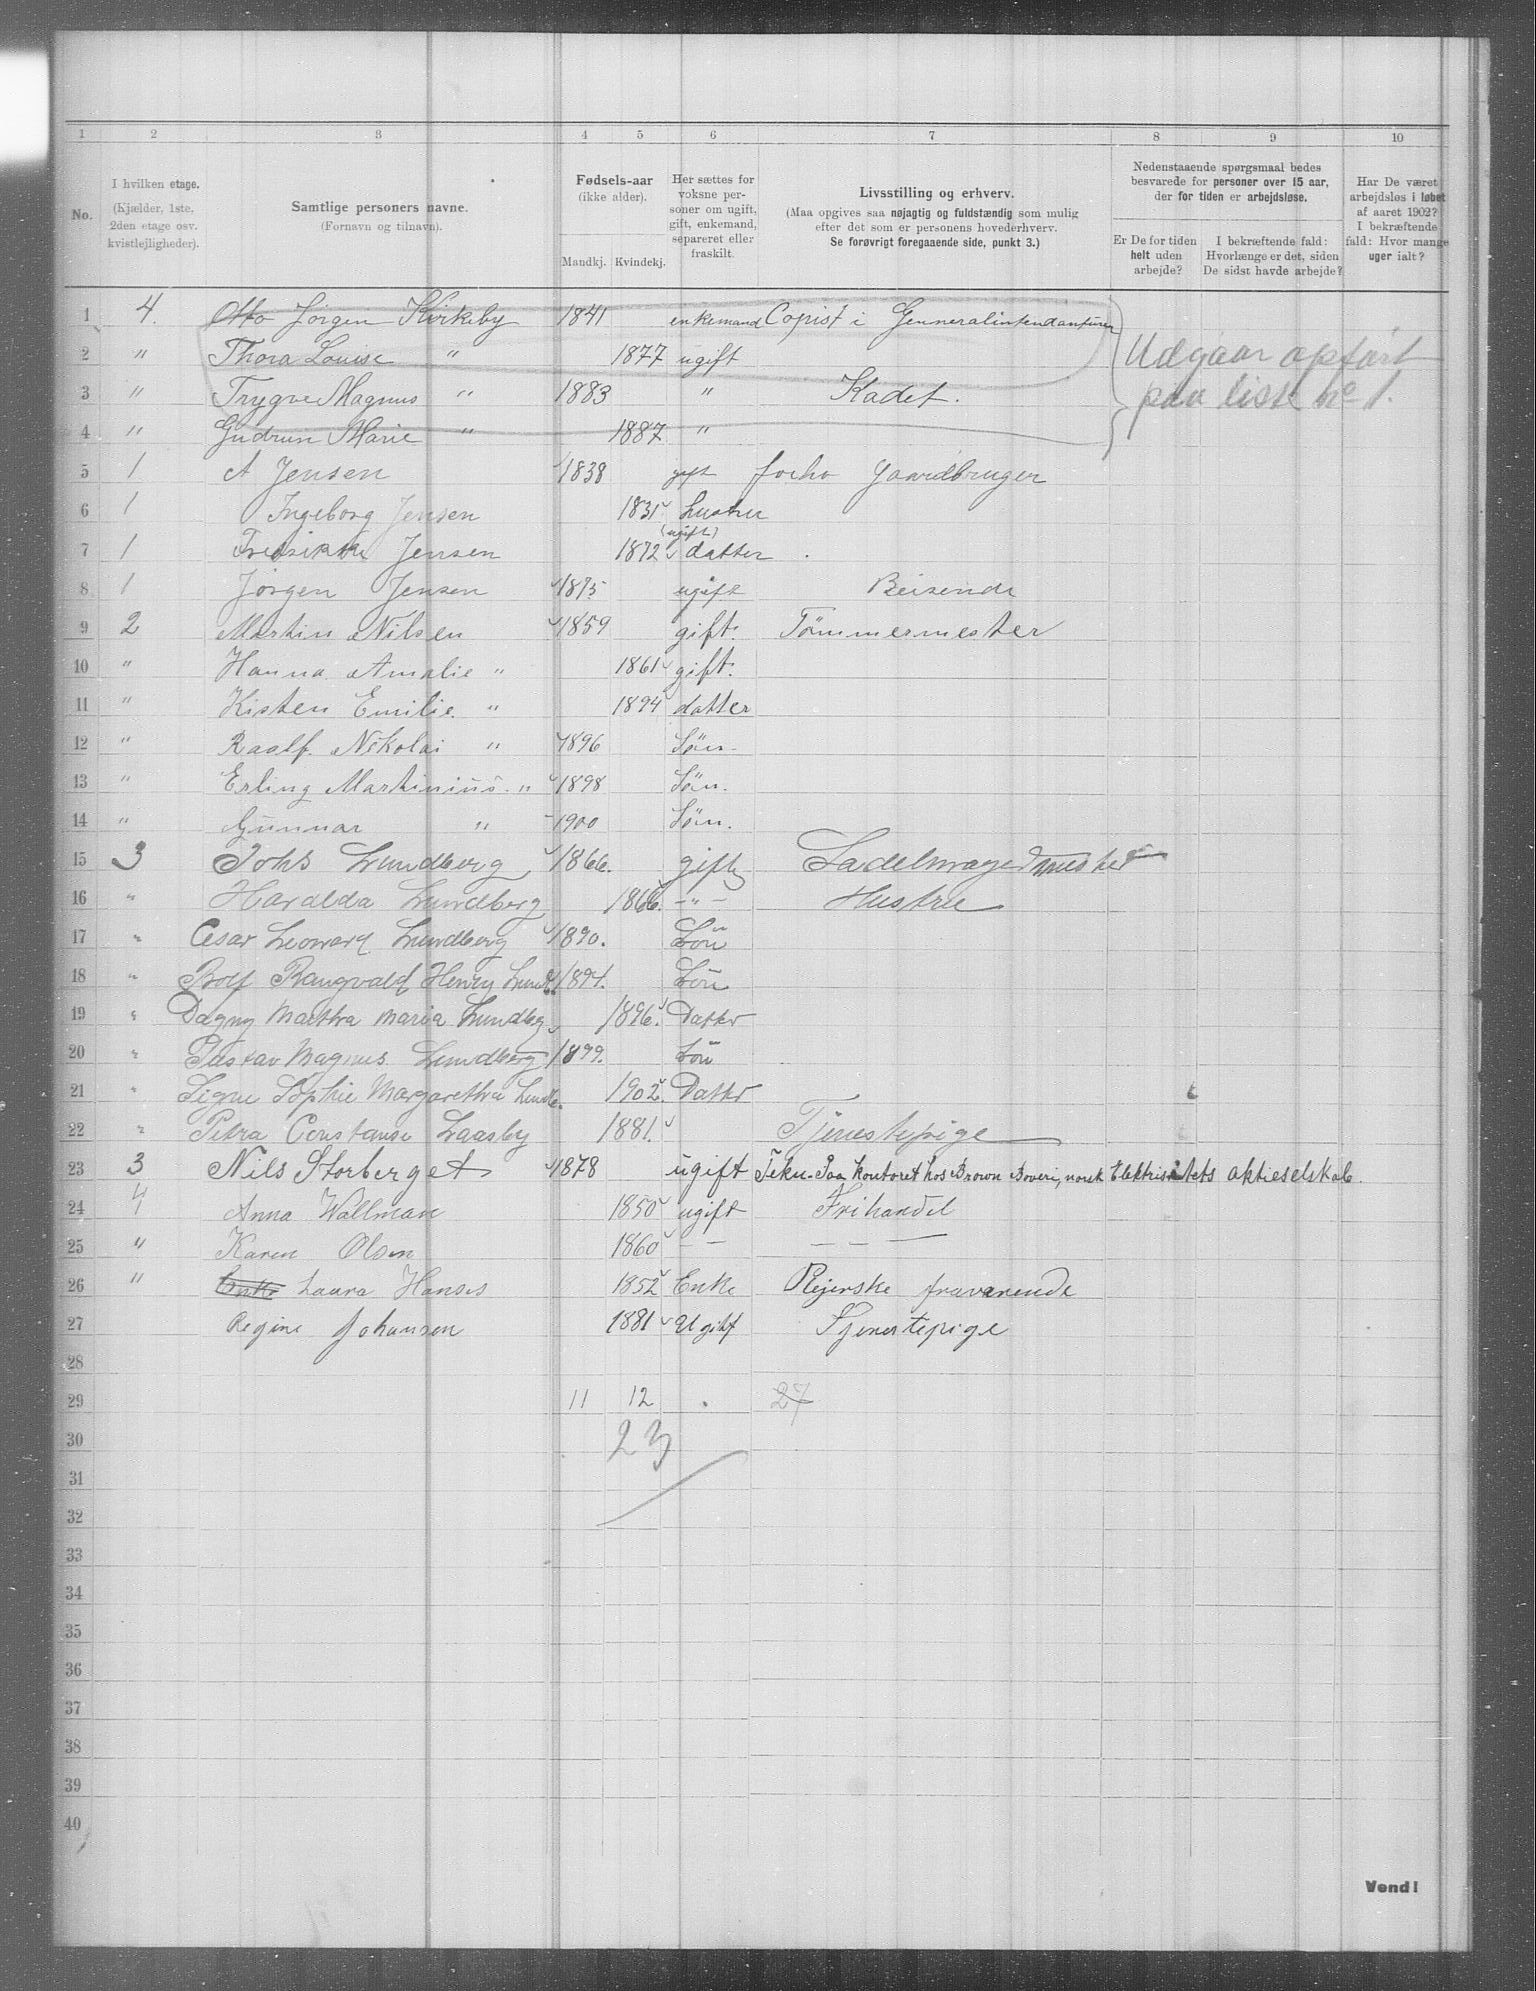 1 2 3 4 5 6 7 8 9 10
No.
I hvilken etage.
(Kjælder, 1ste.
2den etage osv.
kvistlejligheder).
Samtlige personers navne.
(Fornavn og tilnavn).
Fødsels-aar
(ikke alder).
Mandkj. Kvindekj.
Her sættes for
voksne per-
soner om ugift,
gift, enkemand,
separeret eller
fraskilt.
Livsstilling og erhverv.
(Maa opgives saa nøjagtig og fuldstændig som mulig
efter det som er personens hovederhverv.
Se forøvrigt foregaaende side, punkt 3.)
Nedenstaaende spørgsmaal bedes
besvarede for personer over 15 aar,
der for tiden er arbejdsløse.
Er De for tiden
helt uden
arbejde?
I bekræftende fald:
Hvorlænge er det, siden
De sidst havde arbejde?
Har De været
arbejdsløs i løbet
af aaret 1902?
I bekræftende
fald: Hvor mange
uger ialt?
1 4. Otto Jörgen Kirkeby 1841 enkemand Copist i Genneralintendanturen
2 " Thora Louise " 1877 ugift
3 " Trygve Magnus " 1883 " Kadet.
4 " Gudrun Marie " 1887 "
Udgaar opført
paa liste No 1.
5 1 A Jensen 1838 gift forho Gaardbruger
6 1 Ingeborg Jensen 1831 hustru
7 1 Fredrikke Jensen 1872 (ugift) datter
8 1 Jørgen Jensen 1875 ugift Reisende
9 2 Martin Nilsen 1859 gift. Tömmermester
10 " Hanna Amalie " 1861 gift.
11 " Kisten Emilie. " 1894 datter
12 " Raalf. Nikolai " 1896 Sön
13 " Erling Martinius. " 1898 Sön.
14 " Gunnar " 1900 Sön.
15 3 Johs Lundberg 1866. gift Sadelmagermester
16 " Haralda Lundberg 1866. -"- Hustru
17 " Cesar Leonard Lundberg 1890. Sön
18 " Rolf Rangvald Henry Lundb. 1894. Sön
19 " Dagny Martha Maria Lundbg 1896. Datter
20 " Gustav Magnus Lundberg 1899. Sön
21 " Signe Sophie Margarethe Lundb. 1902. Datter
22 " Petra Constanse Laasby 1881. Tjenestepige
23 3 Nils Storberget 1878 ugift Tekn. Paa kontoret hos Brown Boveri, norsk Elektrisitets aktieselskab.
24 4 Anna Wallman 1850 ugift Frihandel
25 " Karen Olsen 1860 — — — — —
26 " Enke Laura Hanses 1852 Enke Plejerske fraværende
27 Regine Johansen 1881 Ugift Tjenestepige
28
29 11 12 27
30 23
31
32
33
34
35
36
37
38
39
40
Vend!